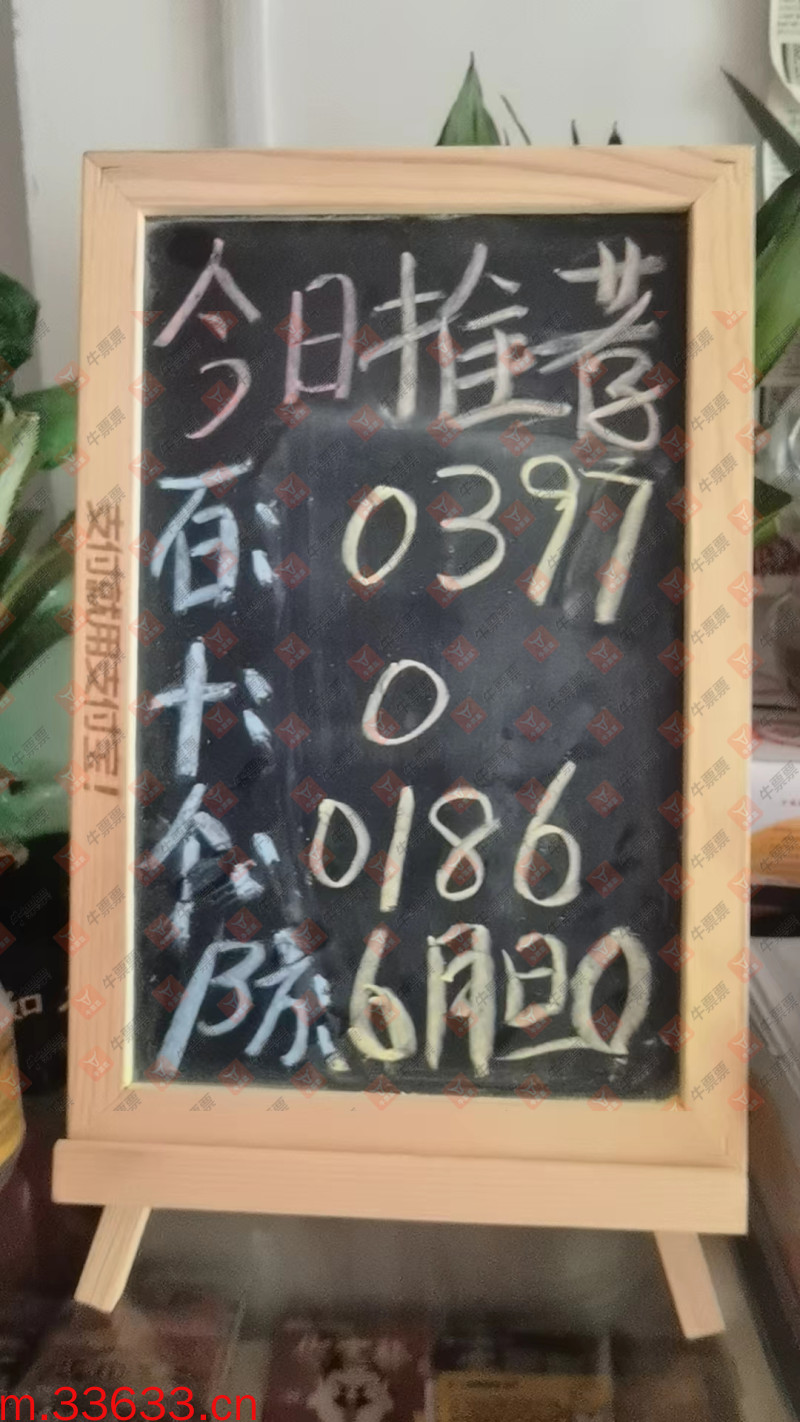 今日推荐
百:0397
十:0
个:0186
防6月胆0
支付就用支付宝!
牛票票
m.33633.cn